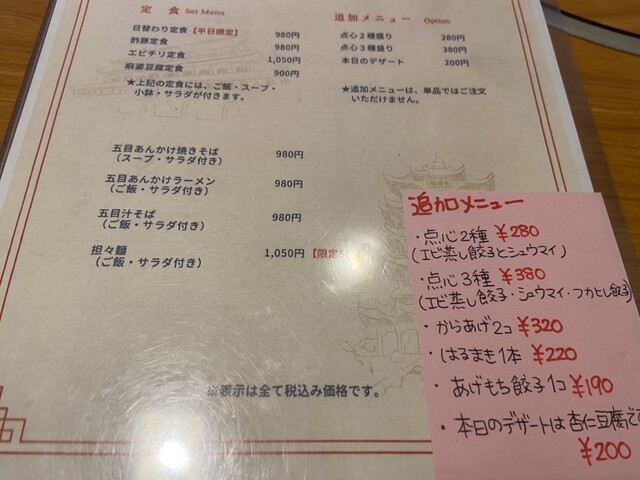 定　食 Set Menu
日替わり定食【平日限定】 980円
酢豚定食 980円
エビチリ定食 1,050円
麻婆豆腐定食 900円
★上記の定食には、ご飯・スープ・
小鉢・サラダが付きます。
追加メニュー Option
点心２種盛り 280円
点心３種盛り 380円
本日のデザート 200円
★追加メニューは、単品ではご注文
いただけません。
五目あんかけ焼きそば 980円
（スープ・サラダ付き）
五目あんかけラーメン 980円
（ご飯・サラダ付き）
五目汁そば 980円
（ご飯・サラダ付き）
担々麺 1,050円【限定
（ご飯・サラダ付き）
※表示は全て税込み価格です。
追加メニュー
・点心2種 ¥280
(エビ蒸し餃子とシュウマイ)
・点心3種 ¥380
(エビ蒸し餃子・シュウマイ・フカヒレ餃子)
・からあげ2コ ¥320
・はるまき1本 ¥220
・あげもち餃子1コ ¥190
・本日のデザートは杏仁豆腐です
¥200